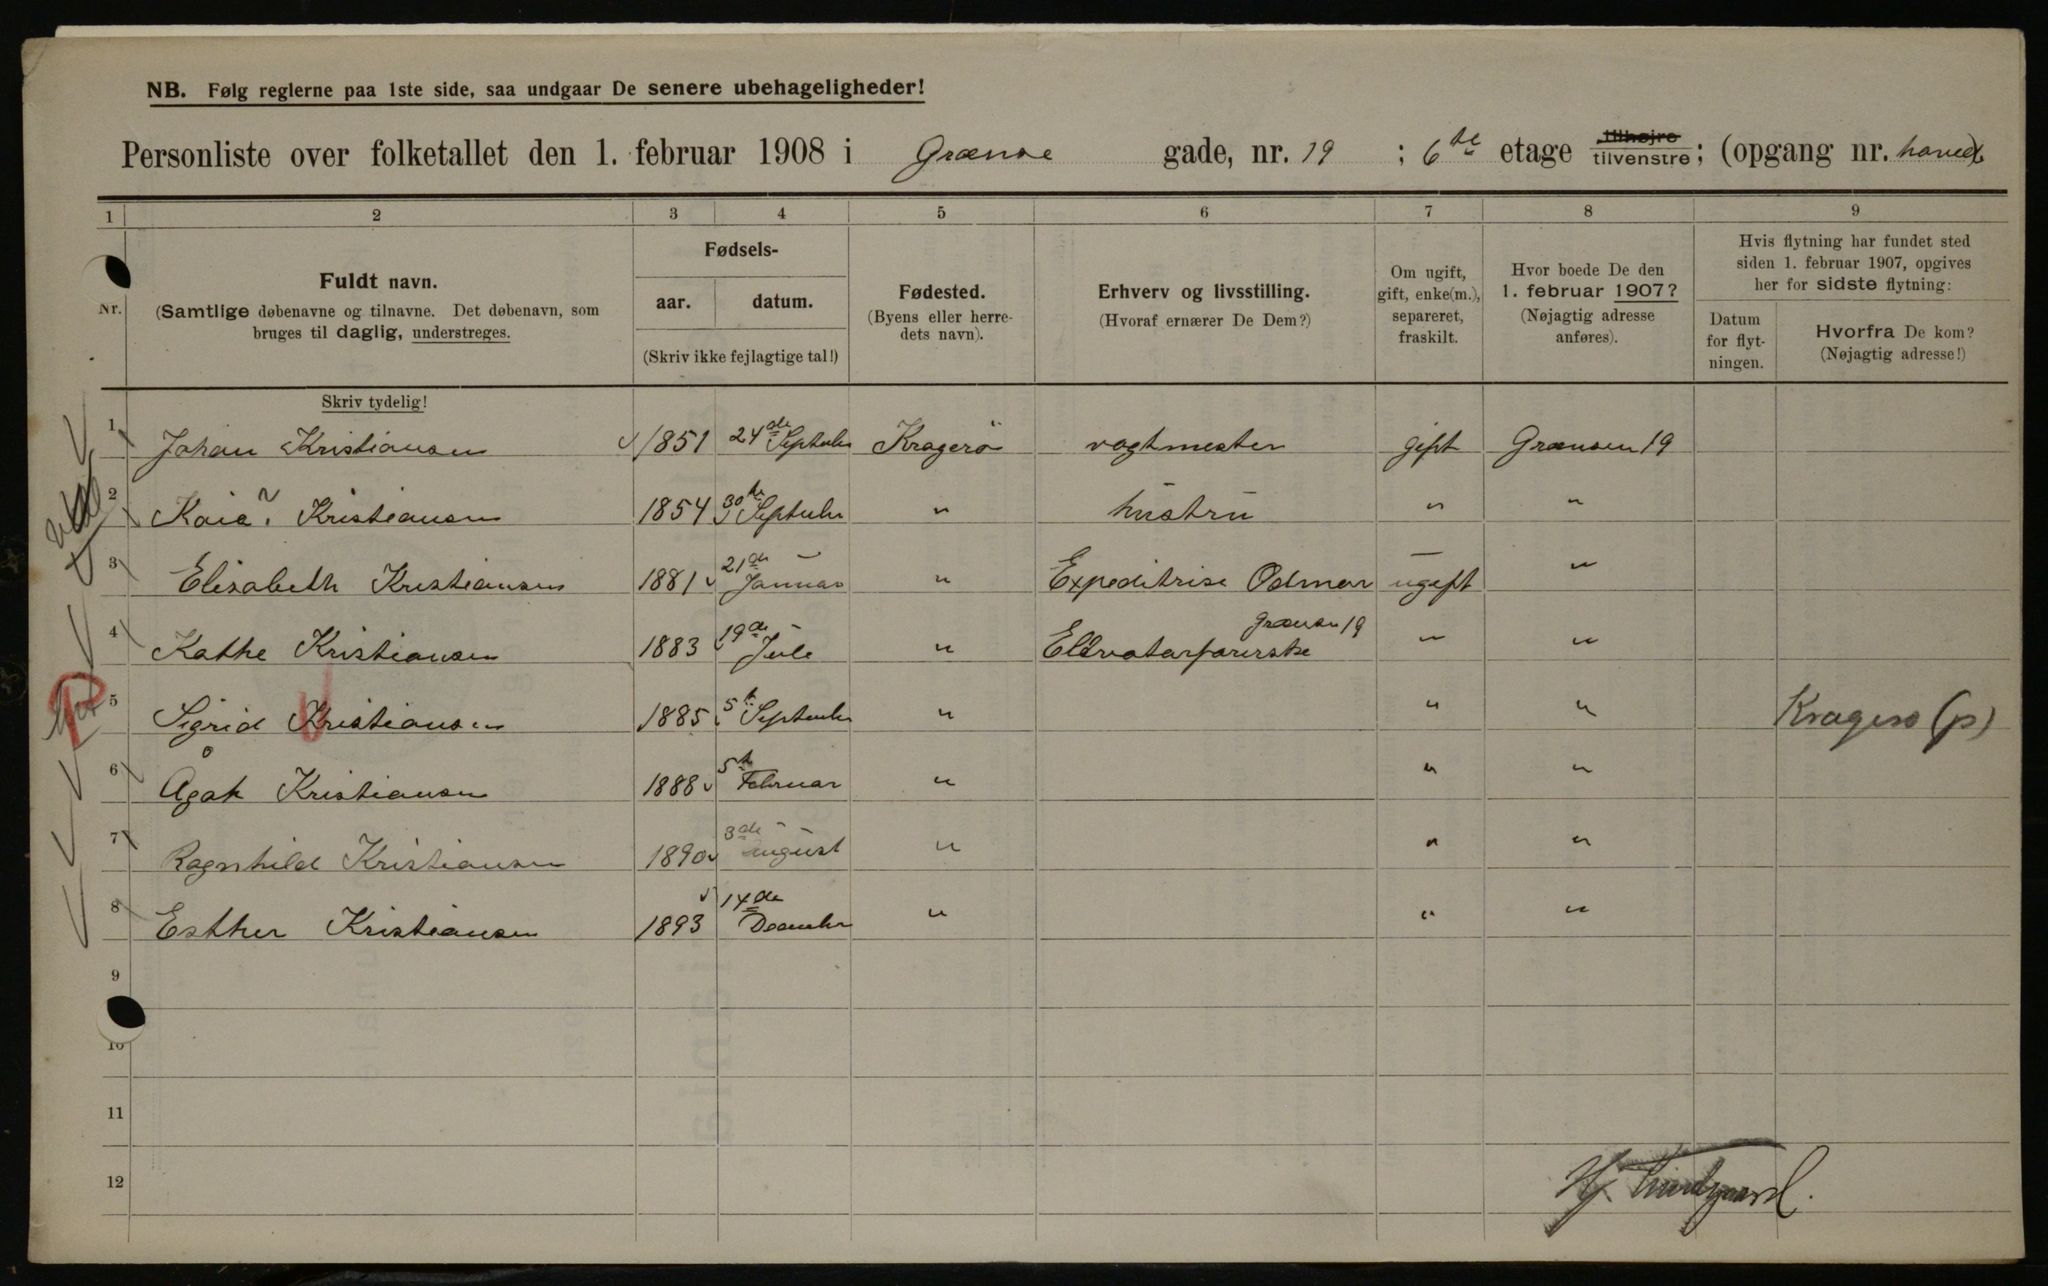 NB. Følg reglerne paa 1ste side, saa undgaar De senere ubehageligheder!
Personliste over folketallet den 1. februar 1908 i Grænse gade, nr. 19 ; 6te etage tilhøjre tilvenstre; (opgang nr. hoved)
1 2 3 4 5 6 7 8 9
Nr.
Fuldt navn.
(Samtlige døbenavne og tilnavne. Det døbenavn, som
bruges til daglig, understreges.
Skriv tydelig!
Fødsels-
aar. datum.
(Skriv ikke fejlagtige tal!)
Fødested.
(Byens eller herre-
dets navn).
Erhverv og livsstilling.
(Hvoraf ernærer De Dem?)
Om ugift,
gift, enke(m.),
separeret,
fraskilt.
Hvor boede De den
1. februar 1907?
(Nøjagtig adresse
anføres).
Hvis flytning har fundet sted
siden 1. februar 1907, opgives
her for sidste flytning:
Datum
for flyt-
ningen.
Hvorfra De kom?
(Nøjagtig adresse!)
1 Johan Kristiansen 1851 24de Septbr Kragerö vagtmester gift Grænsen 19
2 Kaia Kristiansen 1854 30te Septbr " hústrú " "
3 Elisabeth Kristiansen 1881 21de Januar " Expeditrise Odmar ugift "
Grænsen 19
4 Kathe Kristiansen 1883 19de Jule " " "
5 Sigrid Kristiansen 1885 5te Septbr " " " Kragerø (p)
6 Ågot Kristiansen 1888 5te Februar " " "
7 Ragnhild Kristiansen 1890 3de august " " "
8 Esther Kristiansen 1893 14de Decembr " " "
9
10
11
12